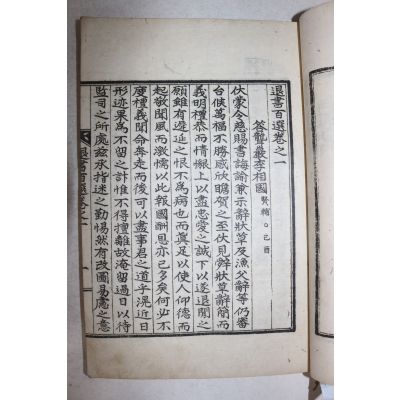 退書百選卷之一
答聾巖李相國 賢輔○己酉
伏蒙令慈賜書誨諭兼示辭狀草及漁父辭等仍審
台候萬福不勝感欣瞻賀之至伏見辭狀草辭簡而
義明禮恭而情懇上以盡忠愛之誠下以遂退閒之
願雖有遲延之恨不爲病也而眞足以使人仰德而
起敬聞風而激懦以此報國酬恩亦已多矣何必不
度禮義聞命奔走而後可以盡事君之道乎滉近日
形迹果爲不留之計惟不得擅離故淹留過日以待
監司之所處玆承指迷之勤惕然有改圖易慮之意
退書百選卷之一 一